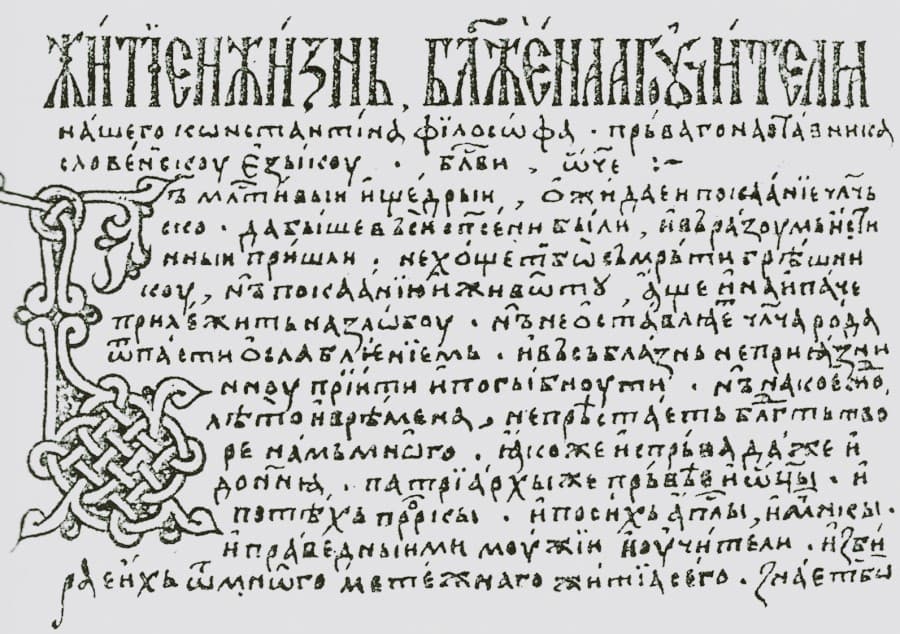 жи́тїе и жи́знь, бл҃же́наагѡ ᲂу҆чи́телꙗ
на́шего кѡнстанті́на фїлосѡ́фа · пръ́ваго наста́вника
слове́нскоу є҆зы́коу · бл҃ви, ѿ́че :~
Б҃ъ мл҃ти́выи и҆ ще́дрыи, ѻ҆жидаеи покаа́нїе чл҃чь
ско · да бы́ше въсѝ сп҃сени бы́ли, и҆ въ разоумь и҆́сти
нныи пришли · не хо́щет бѡ съмръти грѣ́шни
коу, нъ̀ покаа́нїю и҆ живѡту, а҆́ще и҆ наипаче
прилежить на зло́боу · нъ̀ не ѻ҆ста́влꙗет чл҃ча рода
ѿпасти ѻ҆слабле́нїемь · и҆ въ съблазнь непрїꙗ́зни
нноу прїити и҆ погы́бноути · нъ̀ на кое́ждо
лѣ́то и҆ врѣ́мена, не прѣ́стаеть бл҃гть твo
ре на́мь мнѡ́го · ꙗ҆́коже и҆спръ́ва да́же и҆
до нн҃ꙗ · патрїа́рхы же пръ́вѣе и҆ ѡц҃ы · и҆
по тѣ́хь прⷪ҇ркы · и҆ по сихь ап҃лы, и҆ мч҃нкы ·
и҆ пра́ведныими моужїи и҆ ᲂу҆чи́тели · и҆збѝ
рае и҆хь ѿ мнѡ́го мете́жнаго житїа сего̀ · знает бѡ